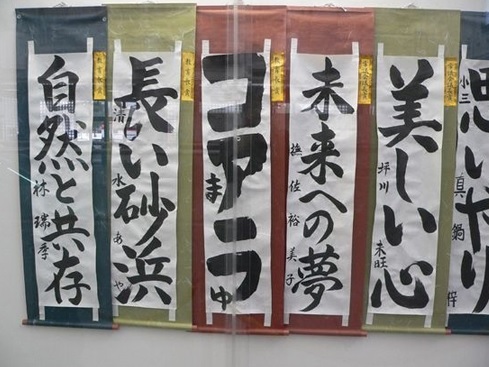 思いやり
小三 真鍋
美しい心
坪川 未旺
未来への夢
撫佐裕美子
コアラ
まゆ
長い砂浜
清水あや
自然と共存
林瑞季